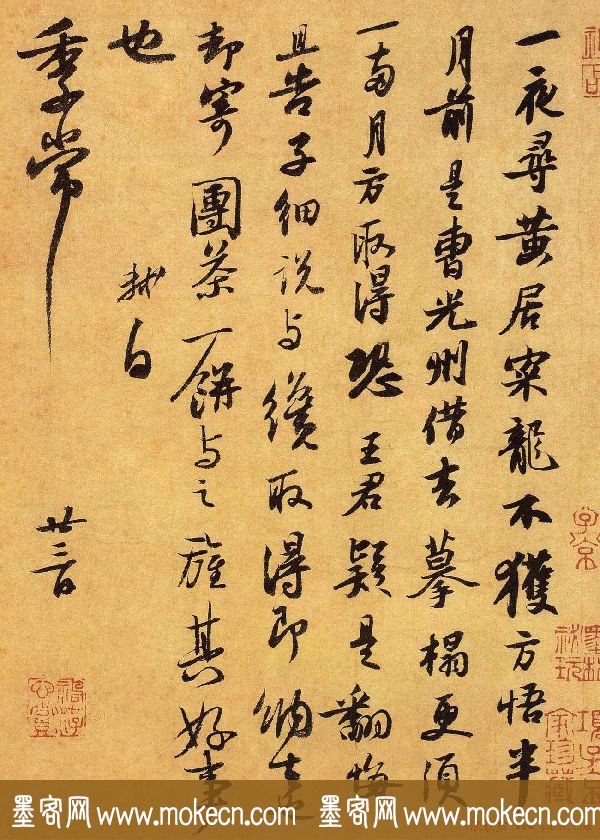 一夜尋黄居寀龍不獲方悟半
月前是曹光州借去摹榻更須
一兩月方取得恐王君疑是翻悔
且告子細說与纔取得即納去也
却寄團茶一餅与之旌其好事
也
軾白
季常
廿三日
墨客网 www.mokecn.com 墨客网 www.mokecn.com